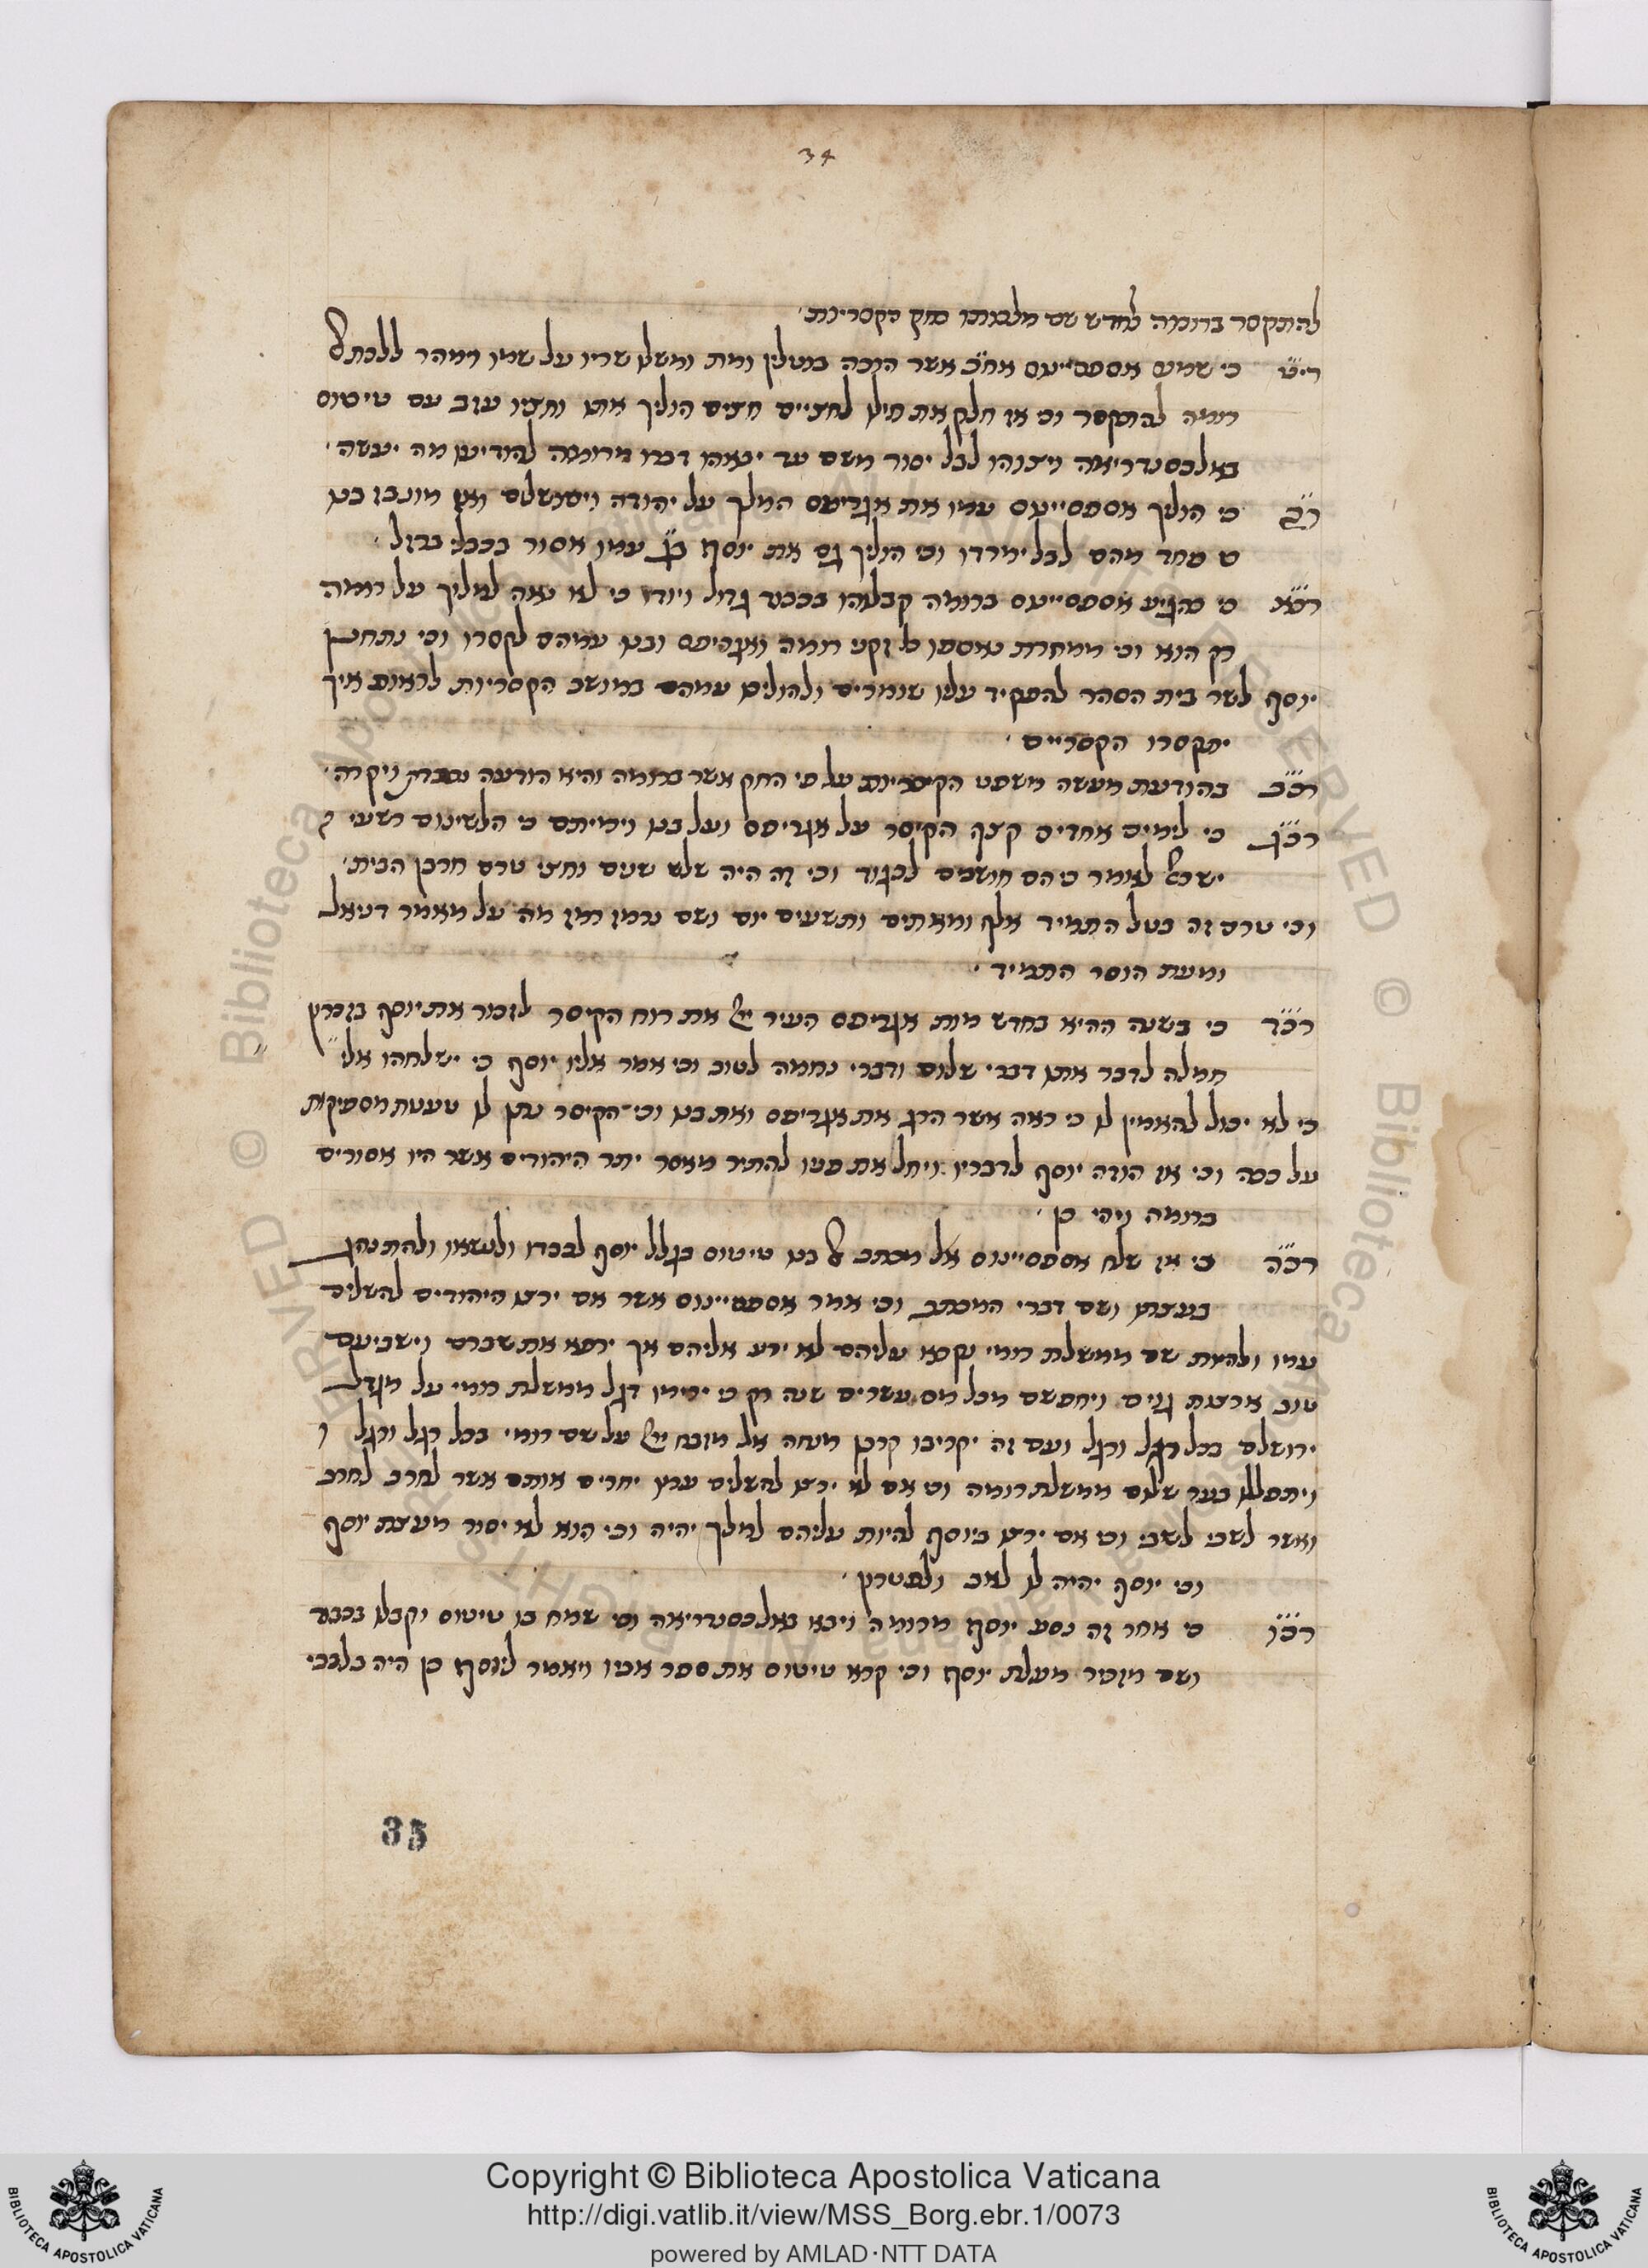 34
להתקסר ברומה לחדש שם מלכותו כחק הקסריות
ריט כי שמע אספסיינוס אח״כ אשר הוכה בוטלין ומת ומשלו שריו על שמו וימהר ללכת אל
רומה להתקסר וכי אז חלק את חילו לחציים חציים הוליך אתו וחציו עזב עם טיטוס
באלכסנדריאה ויצוהו לבל יסור משם עד יבואהו דברו מרומה להודיעו מה יעשה
רכ כי הוליך אספסיינוס עמו את אגריפס המלך על יהודה וירושלם ואת מונבז בנו
כי פחד מהם לבל ימרדו וכי הוליך גם את יוסף עמו אסור בכבלי ברזל
רכא כי כהגיע אספסיינוס ברומה קבלוהו בכבוד גדול ויודו כי לא נאה למלוך על רומה
רק הוא וכי ממחרת נאספו כל זקני רומה ואגריפס ובנו עמיהם לקסרו וכי נתחנן
יוסף לשר בית הסהר להפקיד עליו שומרים ולהוליכו עמהם במושב הקסריות לראות איך
יתקסרו הקסריים
רכב בהודעת מעשה משפט הקיסריות על פי החק אשר ברומה והיא הודעה נכבדת ויקרה
רכג כי לימים אחדים קצף הקיסר על אגריפס ועל בנו וימיתם כי הלשינום רשעי
ישראל לאמר כי הם חושבים לבגוד וכי זה היה שלש שנים וחצי טרם חרבן הבית
וכי טרם זה בטל התמיד אלף ומאתים ותשעים יום ושם נרמז רמז מה על מאמר דניאל
ומעת הוסר התמיד
רכד כי בשנה ההיא בחדש מות אגריפס העיר את רוח הקיסר לזכור את יוסף בזכרון
חמלה לדבר אתו דברי שלום ודברי נחמה לטוב וכי אמר אליו יוסף כי ישלחהו
כי לא יכול להאמין לו כי ראה אשר הרג את אגריפס ואת בנו וכי הקיסר נתן לו טענות מספיקות
על ככה וכי אז הודה יוסף לדבריו ויחל את פניו להתיר מאסר יתר היהודים אשר היו אסורים
ברומה ויהי כן
רכה כי אז שלח אספסיינוס מכתב אל בנו טיטוס בגלל יוסף לכבדו ולנשאו ולהתנהג
בעצתו ושם דברי המכתב וכי אמר אספסיינוס אשר אם ירצו היהודים להשלים
עמו ולהיות שם ממשלת רומי נקרא עליהם לא ירע אליהם אך ירפא את שברם וישביעם
טוב ארצות גוים ויחפשם מכל מס עשרים שנה רק כי ירימו דגל ממשלת רומי על מגדל
ירושלם בכל רגל ורגל ועם זה יקריבו קרבן מנחה אל מזבח על שם רומי בכל רגל ורגל
ויתפללו בעד שלום ממשלת רומה וכי אם לא ירצו להשלים עמו יחרים אותם אשר לחרב לחרב
ואשר לשבי לשבי וכי אם ירצו ביוסף להיות עליהם למלך יהיה וכי הוא לא יסור מעצת יוסף
וכי יוסף יהיה לו לאב ולפטרון
רכו כי אחר זה נסע יוסף מרומה ויבא באלכסנדריאה וכי שמח בו טיטוס וקבלו בכבוד
ושם מזכיר מעלת יוסף וכי קרא טיטוס את ספר אביו ויאמר ליוסף כן היה בלבבי
35
Copyright © Biblioteca Apostolica Vaticana
http://digi.vatlib.it/view/MSS_Borg.ebr.1/0073
powered by AMLAD·NTT DATA